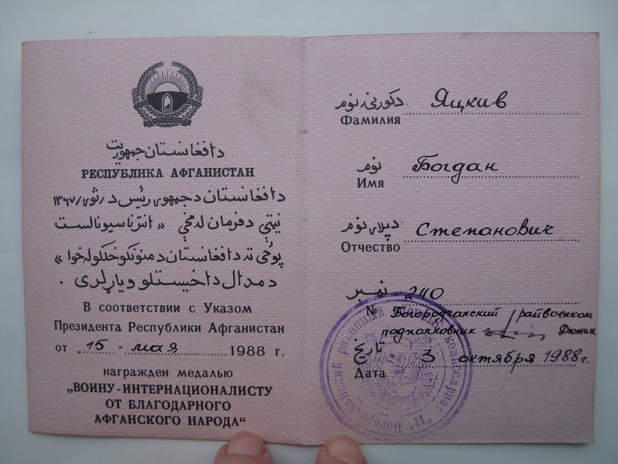 د افغانستان جمهوریت
РЕСПУБЛИКА АФГАНИСТАН
د افغانستان د جمهوری رئیس د ثور/۱۳۶۷
نیټې د فرمان له مخې « انترناسیونالست
د مدال د اخیستلو ویاړلری .
В соответствии с Указом
Президента Республики Афганистан
от 15 мая 1988 г.
награжден медалью
„ВОИНУ-ИНТЕРНАЦИОНАЛИСТУ
ОТ БЛАГОДАРНОГО
АФГАНСКОГО НАРОДА“
د کورنۍ نوم
Фамилия Яцкив
نوم
Имя Богдан
د پلار نوم
Отчество Степанович
نمبر
№ 240
Богородчанский райвоенком
подполковник
تاریخ
Дата 3 октября 1988г.